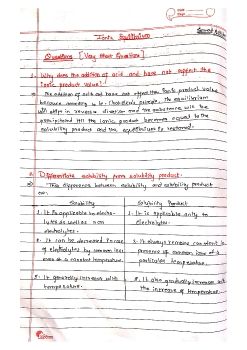 Ionic Equilibrium
Questions [Very Short Questions]
1. Why does the addition of acid and base not affect the
Ionic product value?
The addition of acid and base not affect the Ionic product value
because according to Le-Chatelier's principle, the equilibrium
will shift in reverse direction and the substance will be
precipitated till the ionic product becomes equal to the
solubility product and the equilibrium is restored.
2. Differentiate solubility from solubility product.
The difference between solubility and solubility product
are:
Solubility
Solubility Product
1. It is applicable in electro-
lytes as well as non
electrolytes.
1. It is applicable only to
electrolytes.
2. It can be decreased in case
of electrolytes by common ion
at a constant temperature.
2. It always remains constant in
presence of common ions at a
particular temperature.
3. It gradually increases with
temperature.
3. It also gradually increases with
the increase of temperature.